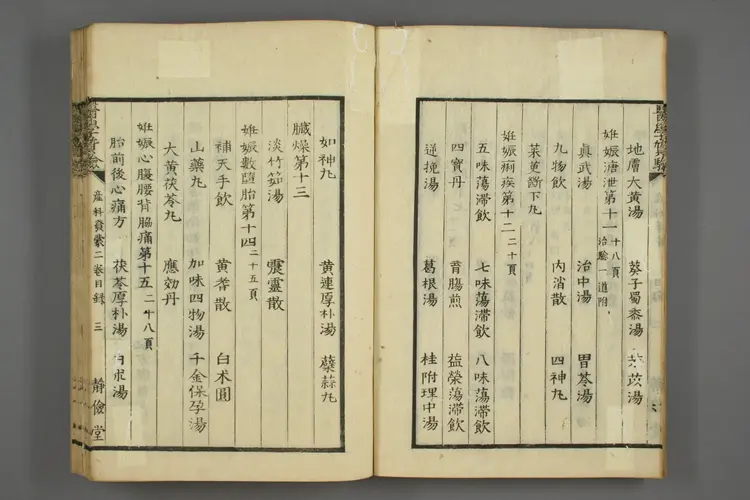 地膚大黃湯 葵子蜀黍湯 芣苡湯
妊娠溏泄第十一 十八頁 治驗一道附
真武湯 治中湯 胃苓湯
九物飲 內消散 四神丸
茱萸斷下丸
妊娠痢疾第十二 二十頁
五味蕩滯飲 七味蕩滯飲 八味蕩滯飲
四寶丹 胃腸煎 益榮蕩滯飲
逆挽湯 葛根湯 桂附理中湯
如神丸 黃連厚朴湯 蘗蒜丸
臟燥第十三
淡竹茹湯 震靈散
妊娠數墮胎第十四 二十五頁
補天手飲 黃芩散 白朮圓
山藥丸 加味四物湯 千金保孕湯
大黃茯苓丸 應効丹
妊娠心腹腰背脇痛第十五 二十八頁
胎前後心痛方 茯苓厚朴湯 白朮湯
產科發蒙二卷目錄 三 靜儉堂